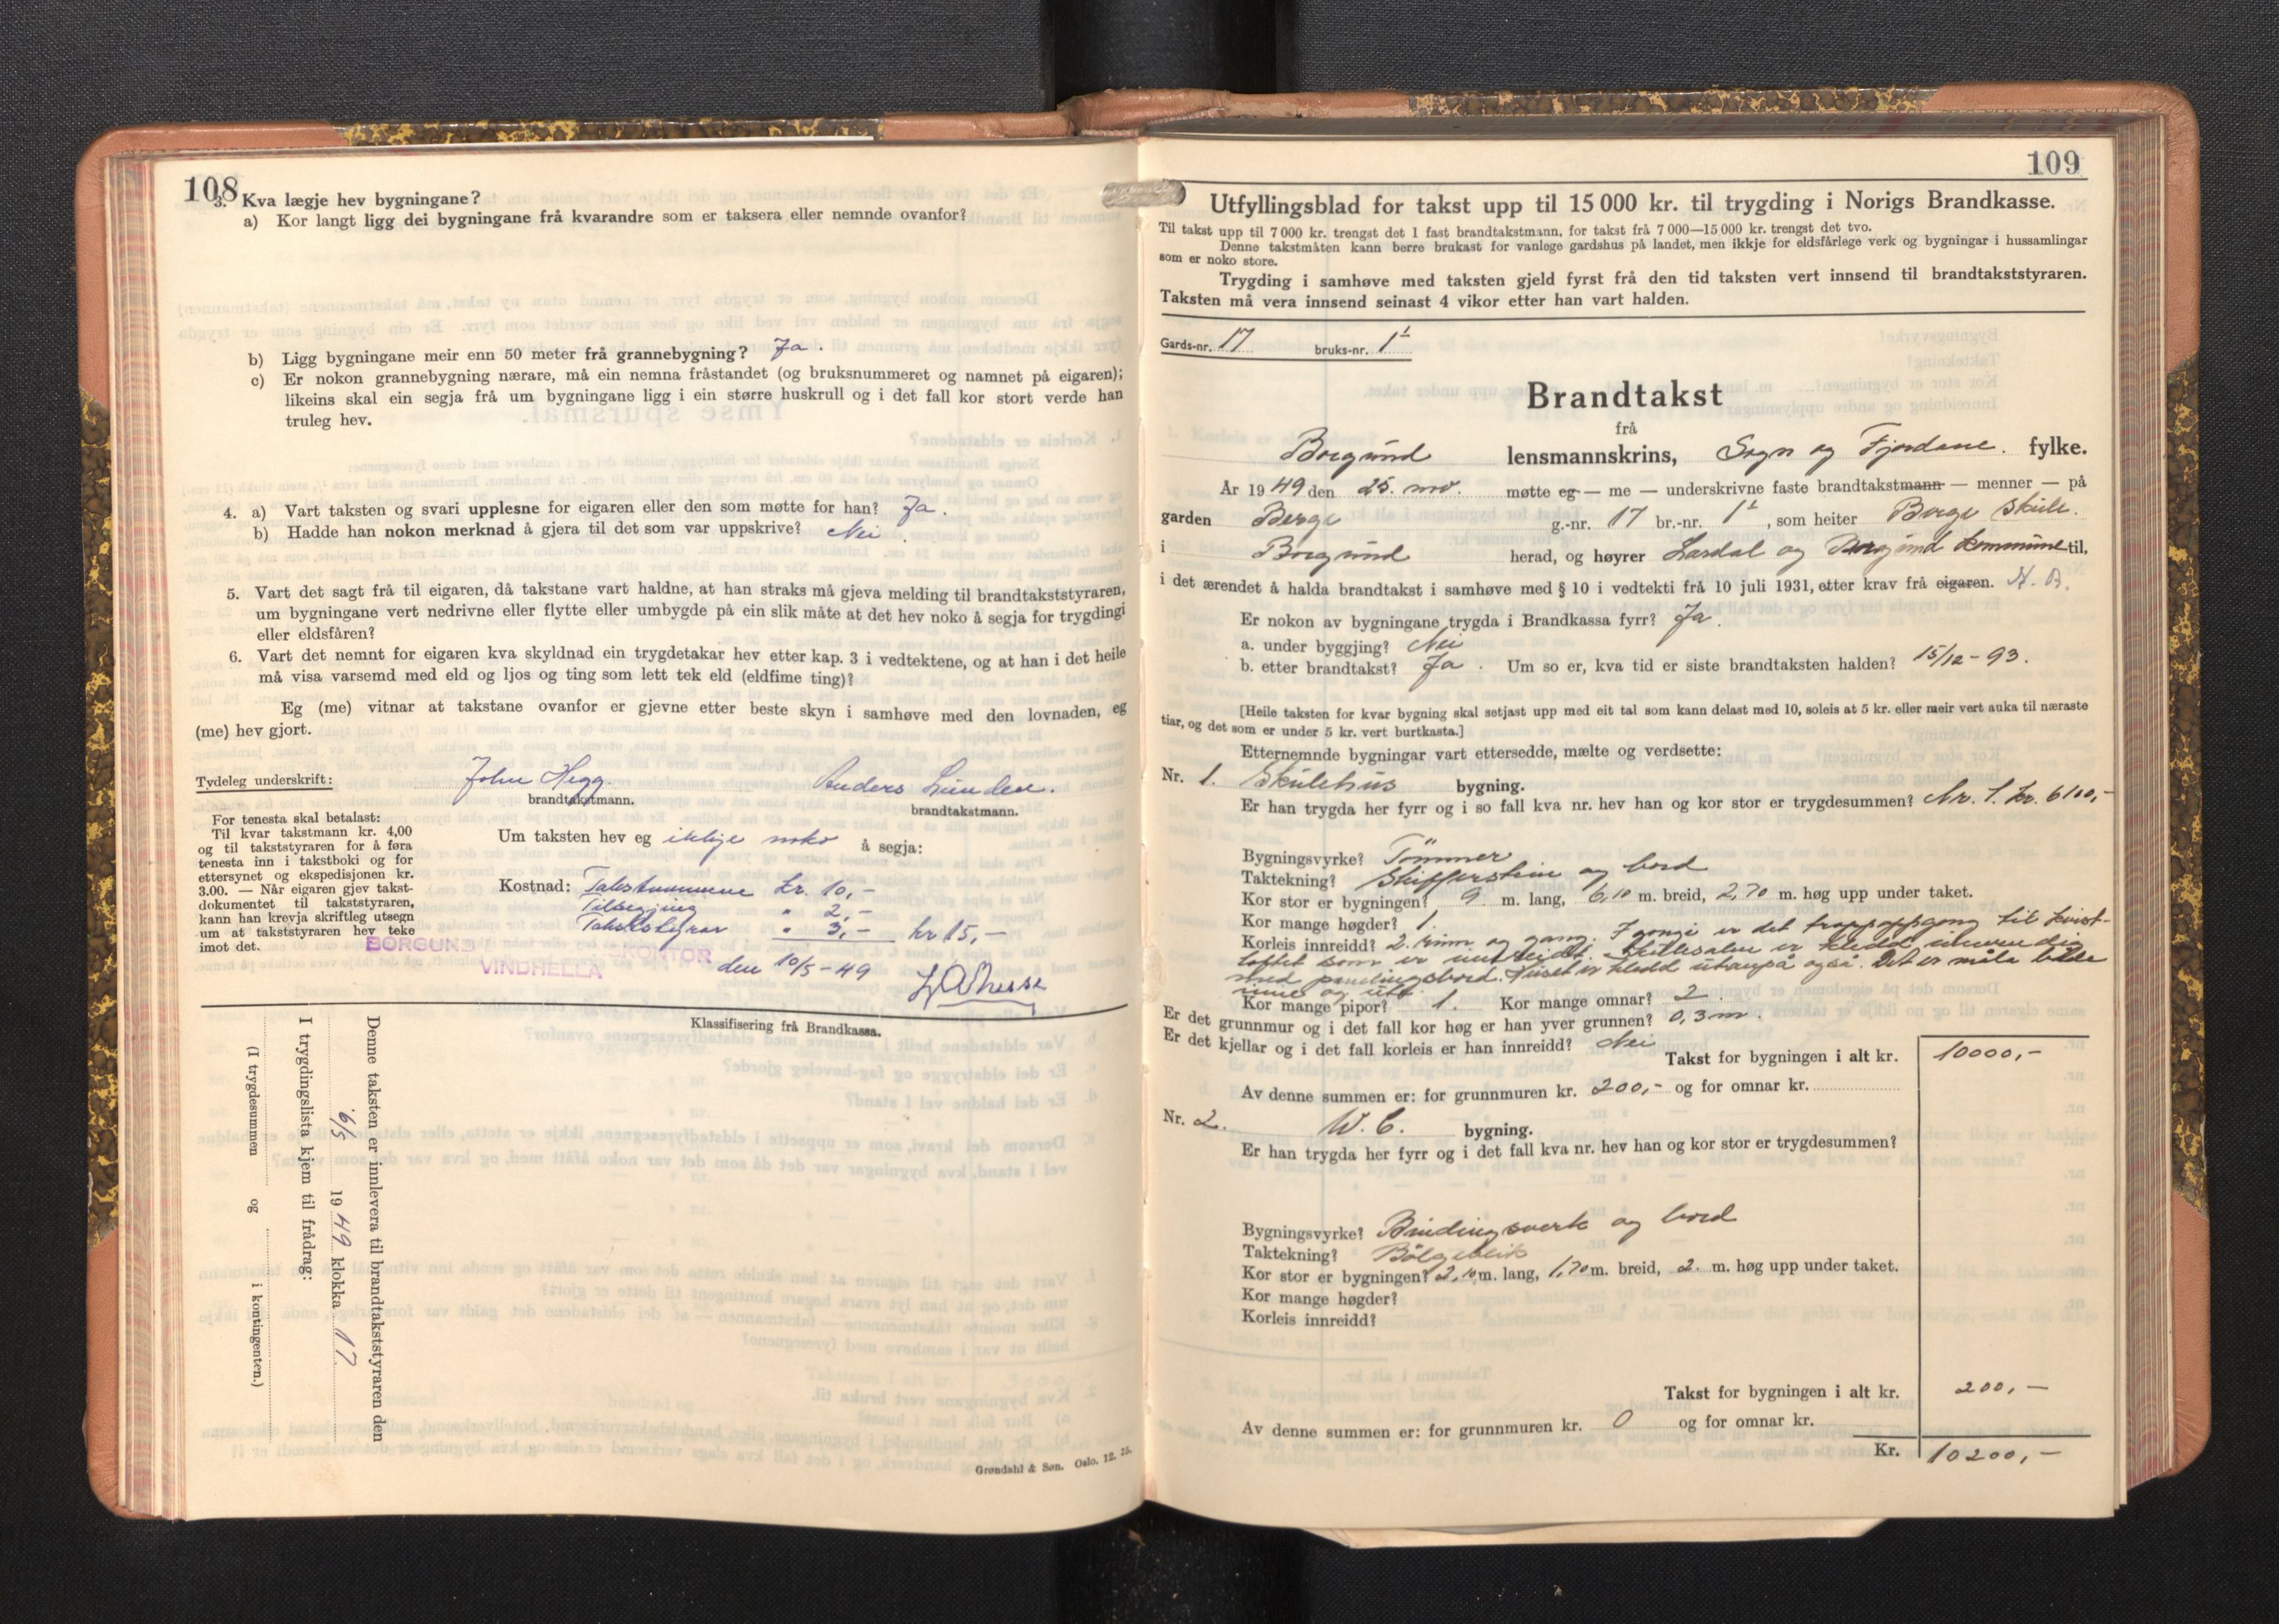 108
3. Kva lægje hev bygningane?
a) Kor langt ligg dei bygningane frå kvarandre som er taksera eller nemnde ovanfor?
b) Ligg bygningane meir enn 50 meter frå grannebygning? Ja.
c) Er nokon grannebygning nærare, må ein nemna fråstandet (og bruksnummeret og namnet på eigaren);
likeins skal ein segja frå um bygningane ligg i ein større huskrull og i det fall kor stort verde han
truleg hev.
4. a) Vart taksten og svari upplesne for eigaren eller den som møtte for han? Ja.
b) Hadde han nokon merknad å gjera til det som var uppskrive? Nei.
5. Vart det sagt frå til eigaren, då takstane vart haldne, at han straks må gjeva melding til brandtakststyraren,
um bygningane vert nedrivne eller flytte eller umbygde på ein slik måte at det hev noko å segja for trygdingi
eller eldsfåren?
6. Vart det nemnt for eigaren kva skyldnad ein trygdetakar hev etter kap. 3 i vedtektene, og at han i det heile
må visa varsemd med eld og ljos og ting som lett tek eld (eldfime ting)?
Eg (me) vitnar at takstane ovanfor er gjevne etter beste skyn i samhøve med den lovnaden, eg
(me) hev gjort.
Tydeleg underskrift: John Hegg. Anders Lunden.
brandtakstmann. brandtakstmann.
For tenesta skal betalast:
Til kvar takstmann kr. 4,00
og til takststyraren for å føra
tenesta inn i takstboki og for
ettersynet og ekspedisjonen kr.
3.00. — Når eigaren gjev takst-
dokumentet til takststyraren,
kann han krevja skriftleg utsegn
um at takststyraren hev teke
imot det.
Um taksten hev eg ikkje noko å segja:
Kostnad: Takstmennene kr. 10,-
Tilsegjing " 2,-
Takststyrar " 3,- kr 15,-
BORGUND KONTOR
VINDHELLA den 10/5-49
Klassifisering frå Brandkassa.
Denne taksten er innlevera til brandtakststyraren den
6/5 1949 klokka 17.
I trygdingslista kjem til frådrag:
(I trygdesummen og i kontingenten.)
Grøndahl & Søn. Oslo. 12. 35.
109
Utfyllingsblad for takst upp til 15 000 kr. til trygding i Norigs Brandkasse.
Til takst upp til 7 000 kr. trengst det 1 fast brandtakstmann, for takst frå 7 000—15 000 kr. trengst det tvo.
Denne takstmåten kann berre brukast for vanlege gardshus på landet, men ikkje for eldsfårlege verk og bygningar i hussamlingar
som er noko store.
Trygding i samhøve med taksten gjeld fyrst frå den tid taksten vert innsend til brandtakststyraren.
Taksten må vera innsend seinast 4 vikor etter han vart halden.
Gards-nr. 17 bruks-nr. 1
Brandtakst
frå
Borgund lensmannskrins, Sogn og Fjordane. fylke.
År 1949 den 25. møtte eg — me — underskrivne faste brandtakstmann — menner — på
garden Berge g.-nr. 17 br.-nr. 1, som heiter Berge Skule.
i Borgund herad, og høyrer Lærdal og Borgund kommune til,
i det ærendet å halda brandtakst i samhøve med § 10 i vedtekti frå 10 juli 1931, etter krav frå eigaren. N. B.
Er nokon av bygningane trygda i Brandkassa fyrr? Ja.
a. under byggjing? Nei
b. etter brandtakst? Ja. Um so er, kva tid er siste brandtaksten halden? 15/12-93.
[Heile taksten for kvar bygning skal setjast upp med eit tal som kann delast med 10, soleis at 5 kr. eller meir vert auka til næraste
tiar, og det som er under 5 kr. vert burtkasta.]
Etternemnde bygningar vart ettersedde, mælte og verdsette:
Nr. 1. Skulehus bygning.
Er han trygda her fyrr og i so fall kva nr. hev han og kor stor er trygdesummen? Nr. 1. kr. 6100,-
Bygningsvyrke? Tömmer
Taktekning? Skifferstein og bord
Kor stor er bygningen? 9 m. lang, 6,10 m. breid, 2,70 m. høg upp under taket.
Kor mange høgder? 1.
Korleis innreidd? 2. rum og gang. I gangi er det trappuppgang til kvist-
loftet som er uinnreidt. Skulesalen er kledd innvendig
med panelingsbord. Huset er kledd utanpå også. Det er måla både
inne og ute.
Kor mange pipor? 1. Kor mange omnar? 2.
Er det grunnmur og i det fall kor høg er han yver grunnen? 0,3 m.
Er det kjellar og i det fall korleis er han innreidd? Nei
Takst for bygningen i alt kr. 10000,-
Av denne summen er: for grunnmuren kr. 200,- og for omnar kr.
Nr. 2. W. C. bygning.
Er han trygda her fyrr og i det fall kva nr. hev han og kor stor er trygdesummen?
Bygningsvyrke? Bindingsverk og bord
Taktekning? Bölgeblik
Kor stor er bygningen? 2,10 m. lang, 1,70 m. breid, 2. m. høg upp under taket.
Kor mange høgder?
Korleis innreidd?
Takst for bygningen i alt kr. 200,-
Av denne summen er: for grunnmuren kr. 0 og for omnar kr.
Kr. 10200,-